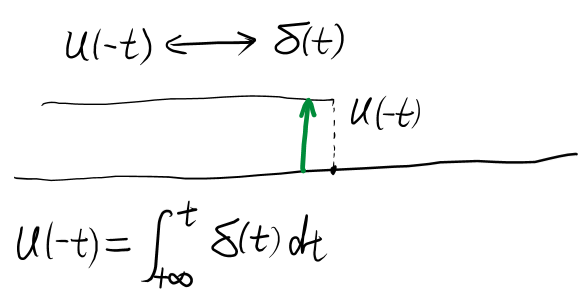 u(-t) ⟷ δ(t)
u(-t)
u(-t) = ∫_{+∞}^{t} δ(t) dt